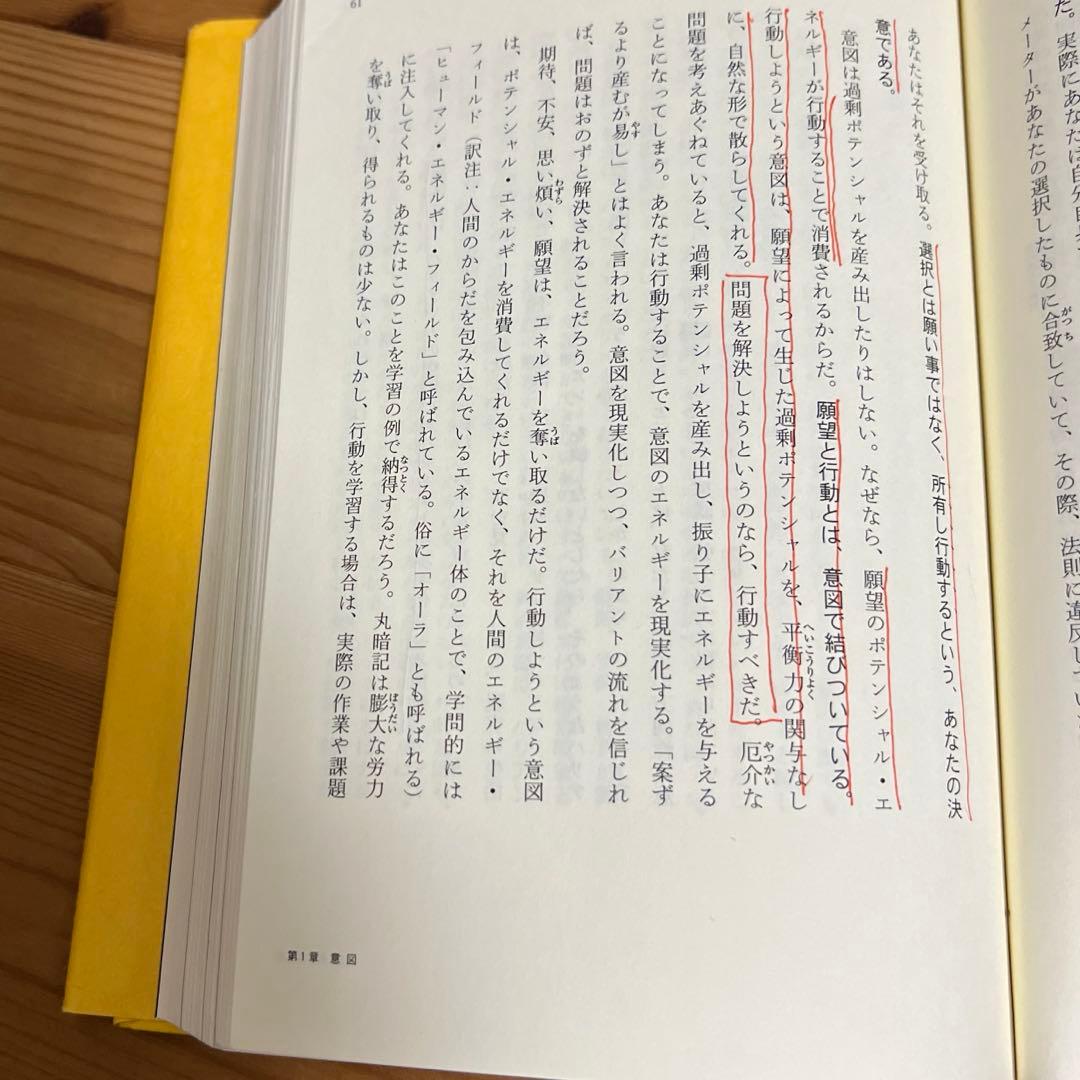 た。実際にあなたは自分
メーターがあなたの選択したものに合致していて、その際、法則に違反してい
がっち
あなたはそれを受け取る。選択とは願い事ではなく、所有し行動するという、あなたの決
意である。
意図は過剰ポテンシャルを産み出したりはしない。なぜなら、願望のポテンシャル・エ
ネルギーが行動することで消費されるからだ。願望と行動とは、意図で結びついている。
行動しようという意図は、願望によって生じた過剰ポテンシャルを、平衡力の関与なし
へいこうりよく
に、自然な形で散らしてくれる。問題を解決しようというのなら、行動すべきだ。厄介な
やつかい
問題を考えあぐねていると、過剰ポテンシャルを産み出し、振り子にエネルギーを与える
ことになってしまう。あなたは行動することで、意図のエネルギーを現実化する。「案ず
るより産むが易し」とはよく言われる。意図を現実化しつつ、バリアントの流れを信じれ
やす
ば、問題はおのずと解決されることだろう。
期待、不安、思い煩い、願望は、エネルギーを奪い取るだけだ。行動しようという意図
わずら
うば
は、ポテンシャル・エネルギーを消費してくれるだけでなく、それを人間のエネルギー・
フィールド（訳注：人間のからだを包み込んでいるエネルギー体のことで、学問的には
「ヒューマン・エネルギー・フィールド」と呼ばれている。俗に「オーラ」とも呼ばれる）
に注入してくれる。あなたはこのことを学習の例で納得するだろう。丸暗記は膨大な労力
なつとく
ぼうだい
を奪い取り、得られるものは少ない。しかし、行動を学習する場合は、実際の作業や課題
うば
61
第1章 意図